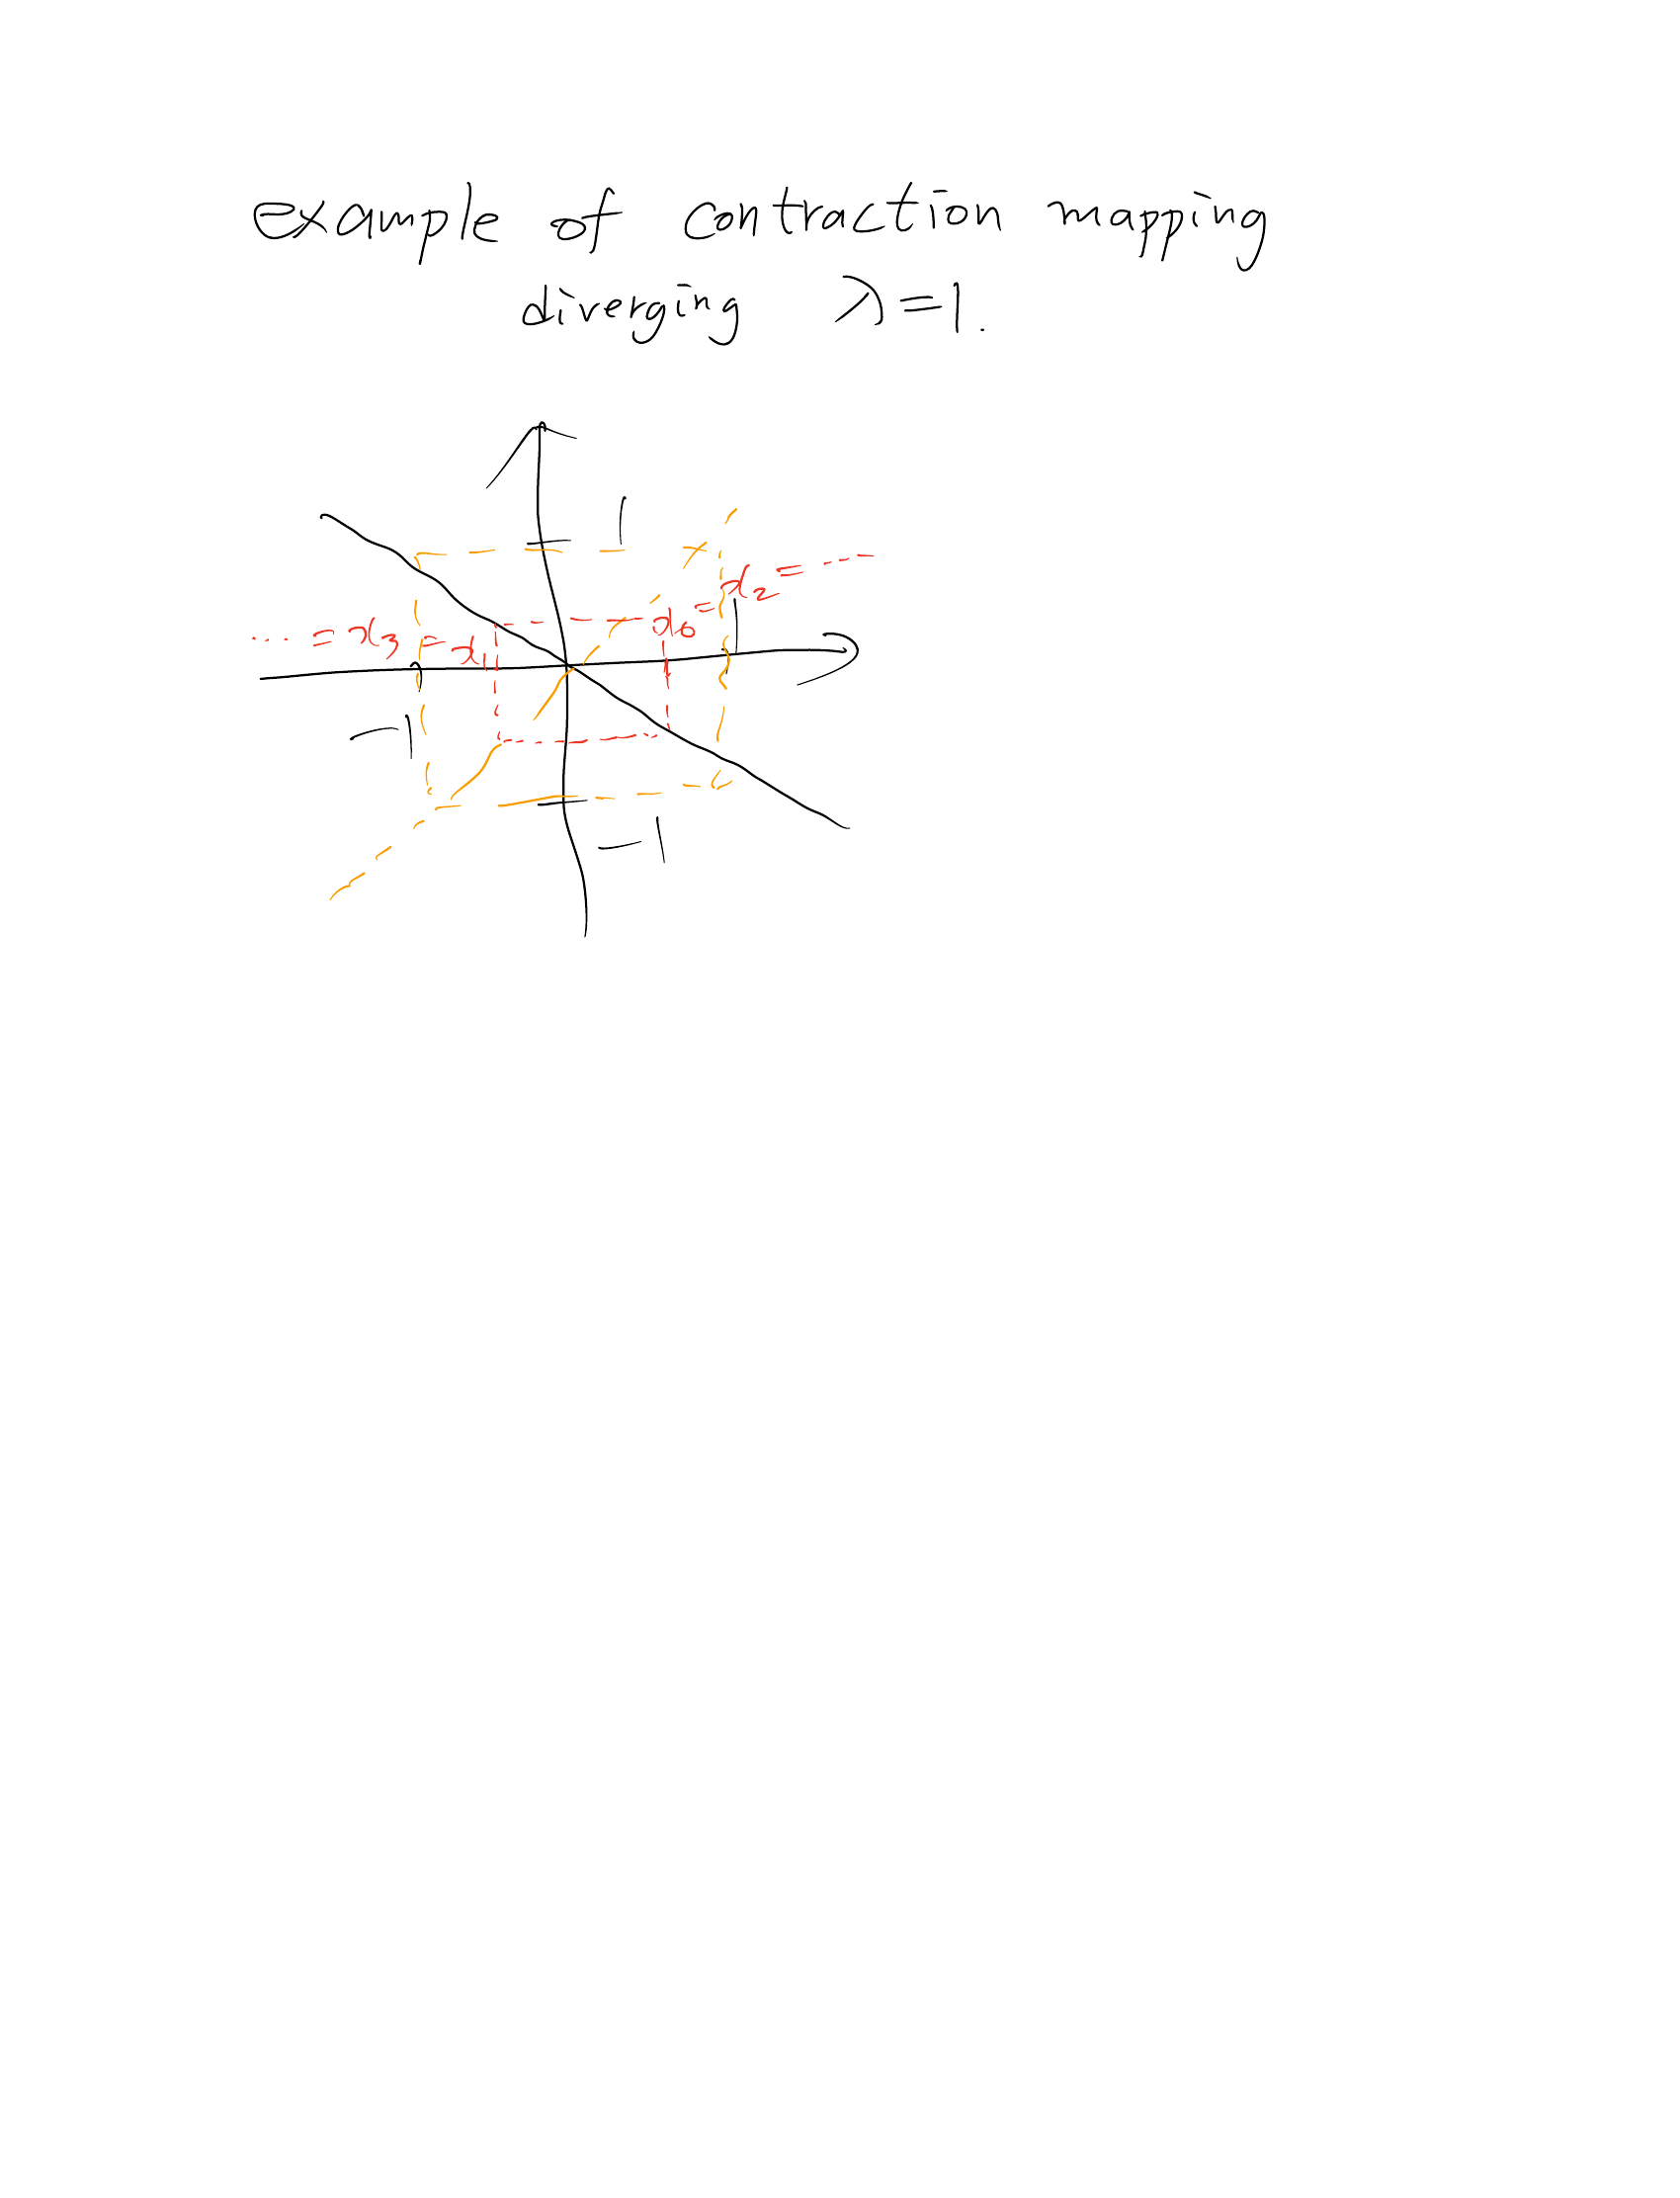 example of contraction mapping
diverging λ=1.
1
... = x₃ = x₁
x₀ = x₂ = ...
1
-1
-1